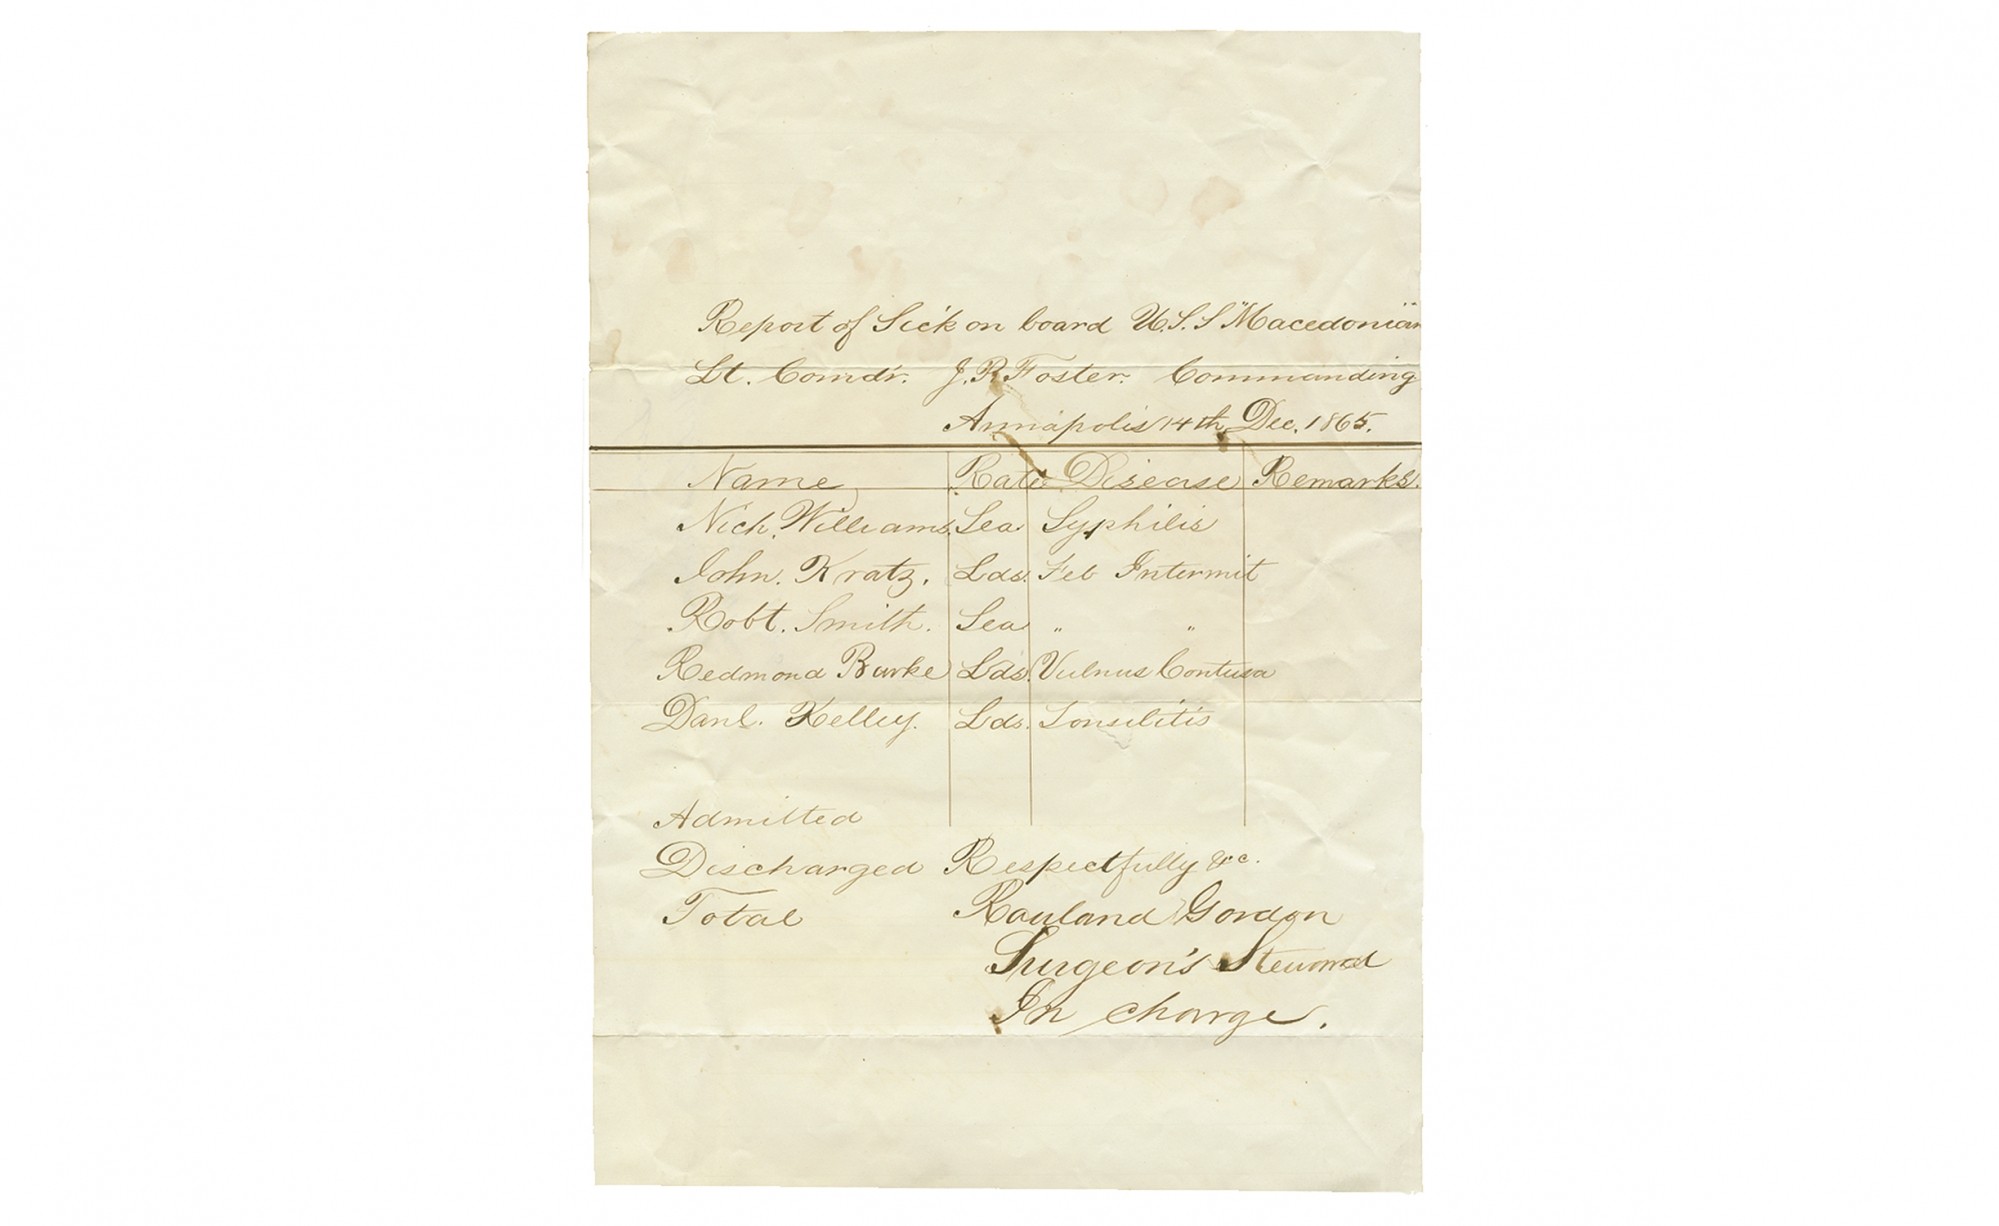 Report of Sick on board U.S.S "Macedonian"
Lt. Comdr. J.R. Foster. Commanding
Annapolis 14th Dec. 1865.
Name Rate Disease Remarks.
Nich. Williams. Sea Syphilis
John. Kratz. Lds. Feb Intermit
Robt. Smith. Sea " "
Redmond Burke Lds. Vulnus Contusa
Danl. Kelley. Lds. Tonsilitis
Admitted
Discharged Respectfully &c.
Total Rouland Gordon
Surgeon's Steward
In charge.